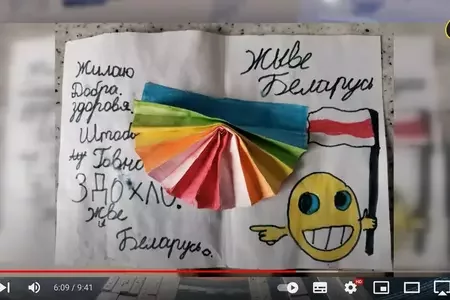 Жилаю
Добра.
здоровя
Штоб
Говно
ЗДОХЛО.
Жыве
Беларусь.
Жыве
Беларусь
6:09 / 9:41
HD